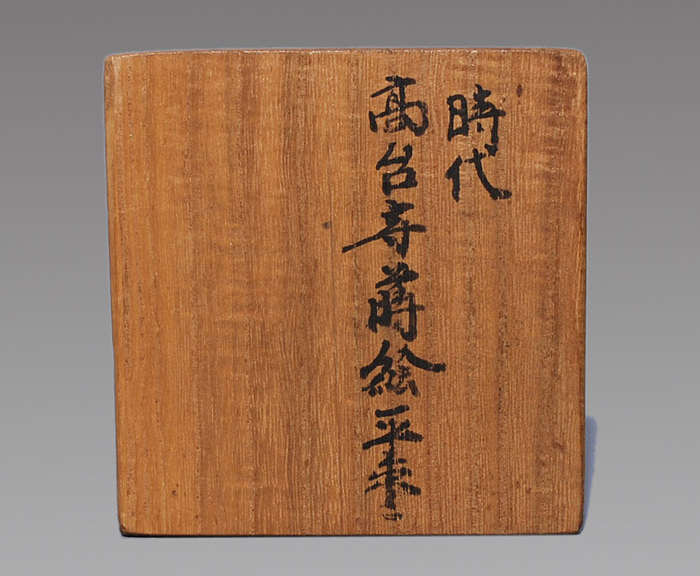 時代
高台寺蒔絵平棗